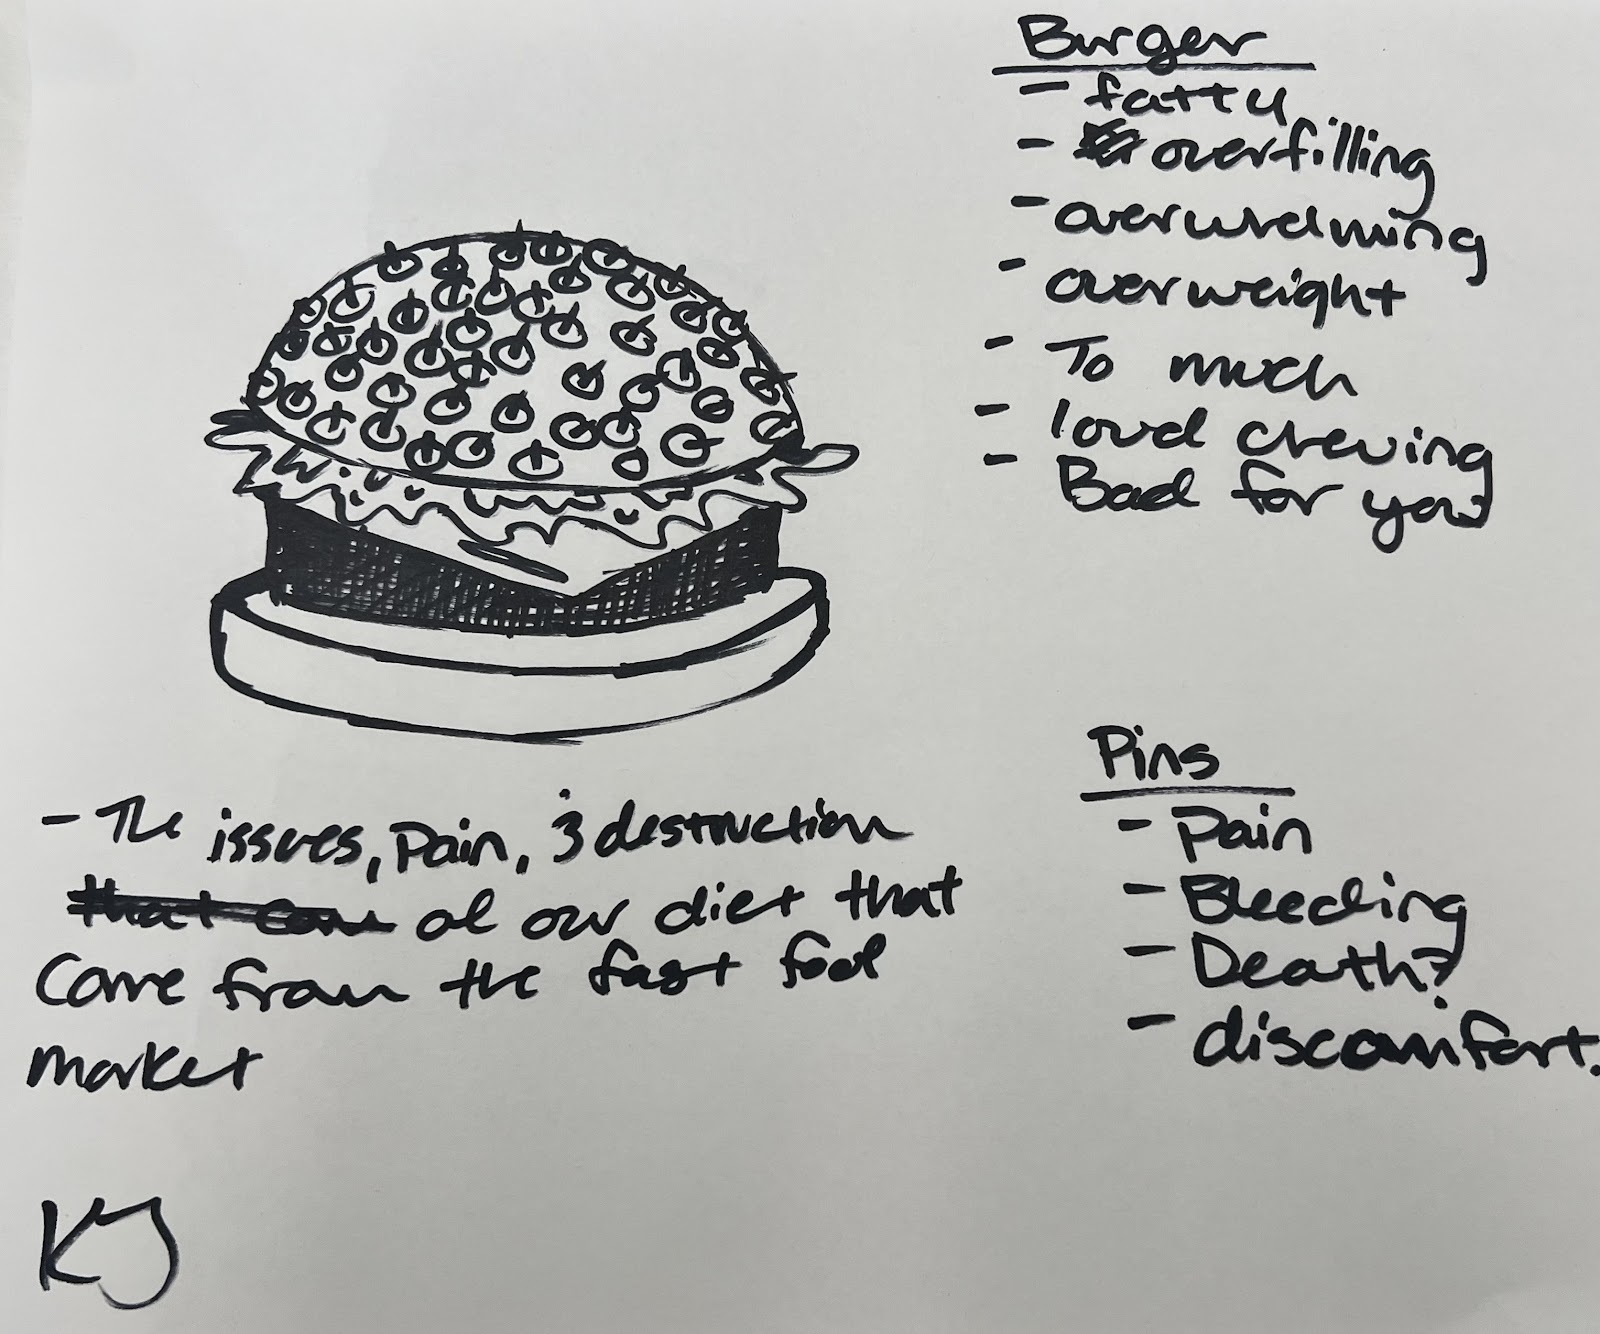 Burger
- fatty
- overfilling
- overwhelming
- overweight
- To much
- loud chewing
- Bad for you
Pins
- Pain
- Bleeding
- Death?
- discomfort.
- The issues, Pain, & destruction
that com of our diet that
come from the fast food
market
KJ